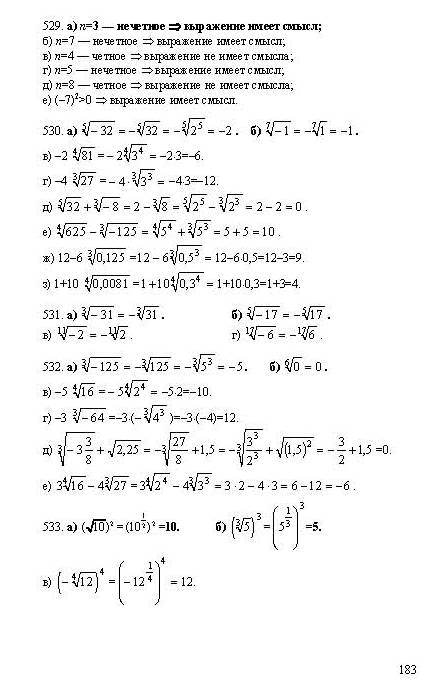 529. а) n=3 — нечетное ⇒ выражение имеет смысл;
б) n=7 — нечетное ⇒ выражение имеет смысл;
в) n=4 — четное ⇒ выражение не имеет смысла;
г) n=5 — нечетное ⇒ выражение имеет смысл;
д) n=8 — четное ⇒ выражение не имеет смысла;
е) (−7)²>0 ⇒ выражение имеет смысл.
530. а) ⁵√(−32) = −⁵√32 = −⁵√(2⁵) = −2. б) ⁷√(−1) = −⁷√1 = −1.
в) −2 ⁴√81 = −2⁴√(3⁴) = −2·3=−6.
г) −4 ³√27 = −4·³√(3³) = −4·3=−12.
д) ⁵√32 + ³√(−8) = 2 − ³√8 = ⁵√(2⁵) − ³√(2³) = 2 − 2 = 0.
е) ⁴√625 − ³√(−125) = ⁴√(5⁴) + ³√(5³) = 5 + 5 = 10.
ж) 12−6 ³√(0,125) = 12 − 6³√(0,5³) = 12−6·0,5=12−3=9.
з) 1+10 ⁴√(0,0081) = 1+10⁴√(0,3⁴) = 1+10·0,3=1+3=4.
531. а) ³√(−31) = −³√31. б) ⁵√(−17) = −⁵√17.
в) ¹¹√(−2) = −¹¹√2. г) ¹⁷√(−6) = −¹⁷√6.
532. а) ³√(−125) = −³√125 = −³√(5³) = −5. б) ⁶√0 = 0.
в) −5 ⁴√16 = −5⁴√(2⁴) = −5·2=−10.
г) −3 ³√(−64) = −3·(−³√(4³))=−3·(−4)=12.
д) ³√(−3 3/8) + √(2,25) = −³√(27/8) + 1,5 = −³√(3³/2³) + √((1,5)²) = −3/2 + 1,5 = 0.
е) 3⁴√16 − 4³√27 = 3⁴√(2⁴) − 4³√(3³) = 3·2 − 4·3 = 6 − 12 = −6.
533. а) (√10)² = (10^(1/2))² = 10. б) (³√5)³ = (5^(1/3))³ = 5.
в) (−⁴√12)⁴ = (−12^(1/4))⁴ = 12.
183